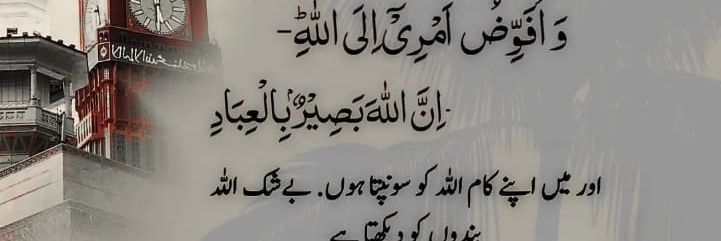 وَاُفَوِّضُ اَمْرِیْۤ اِلَی اللّٰهِؕ-
-اِنَّ اللّٰهَ بَصِیْرٌۢ بِالْعِبَادِ
اور میں اپنے کام اللہ کو سونپتا ہوں. بےشک اللہ
بندوں کو دیکھتا ہے